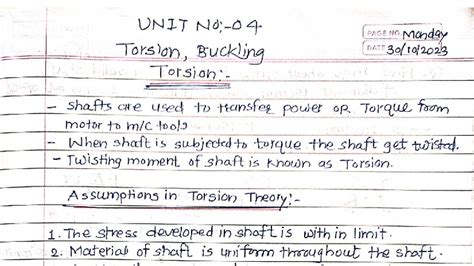 UNIT No:-04.
PAGE NO. Monday
DATE 30/10/2023
Torsion, Buckling
Torsion:-
- shafts are used to transfer power or Torque from
motor to m/c tools
- When shaft is subjected to torque the shaft get twisted.
- Twisting moment of shaft is known as Torsion.
Assumptions in Torsion Theory:-
1. The stress developed in shaft is with in limit.
2. Material of shaft is uniform throughout the shaft.